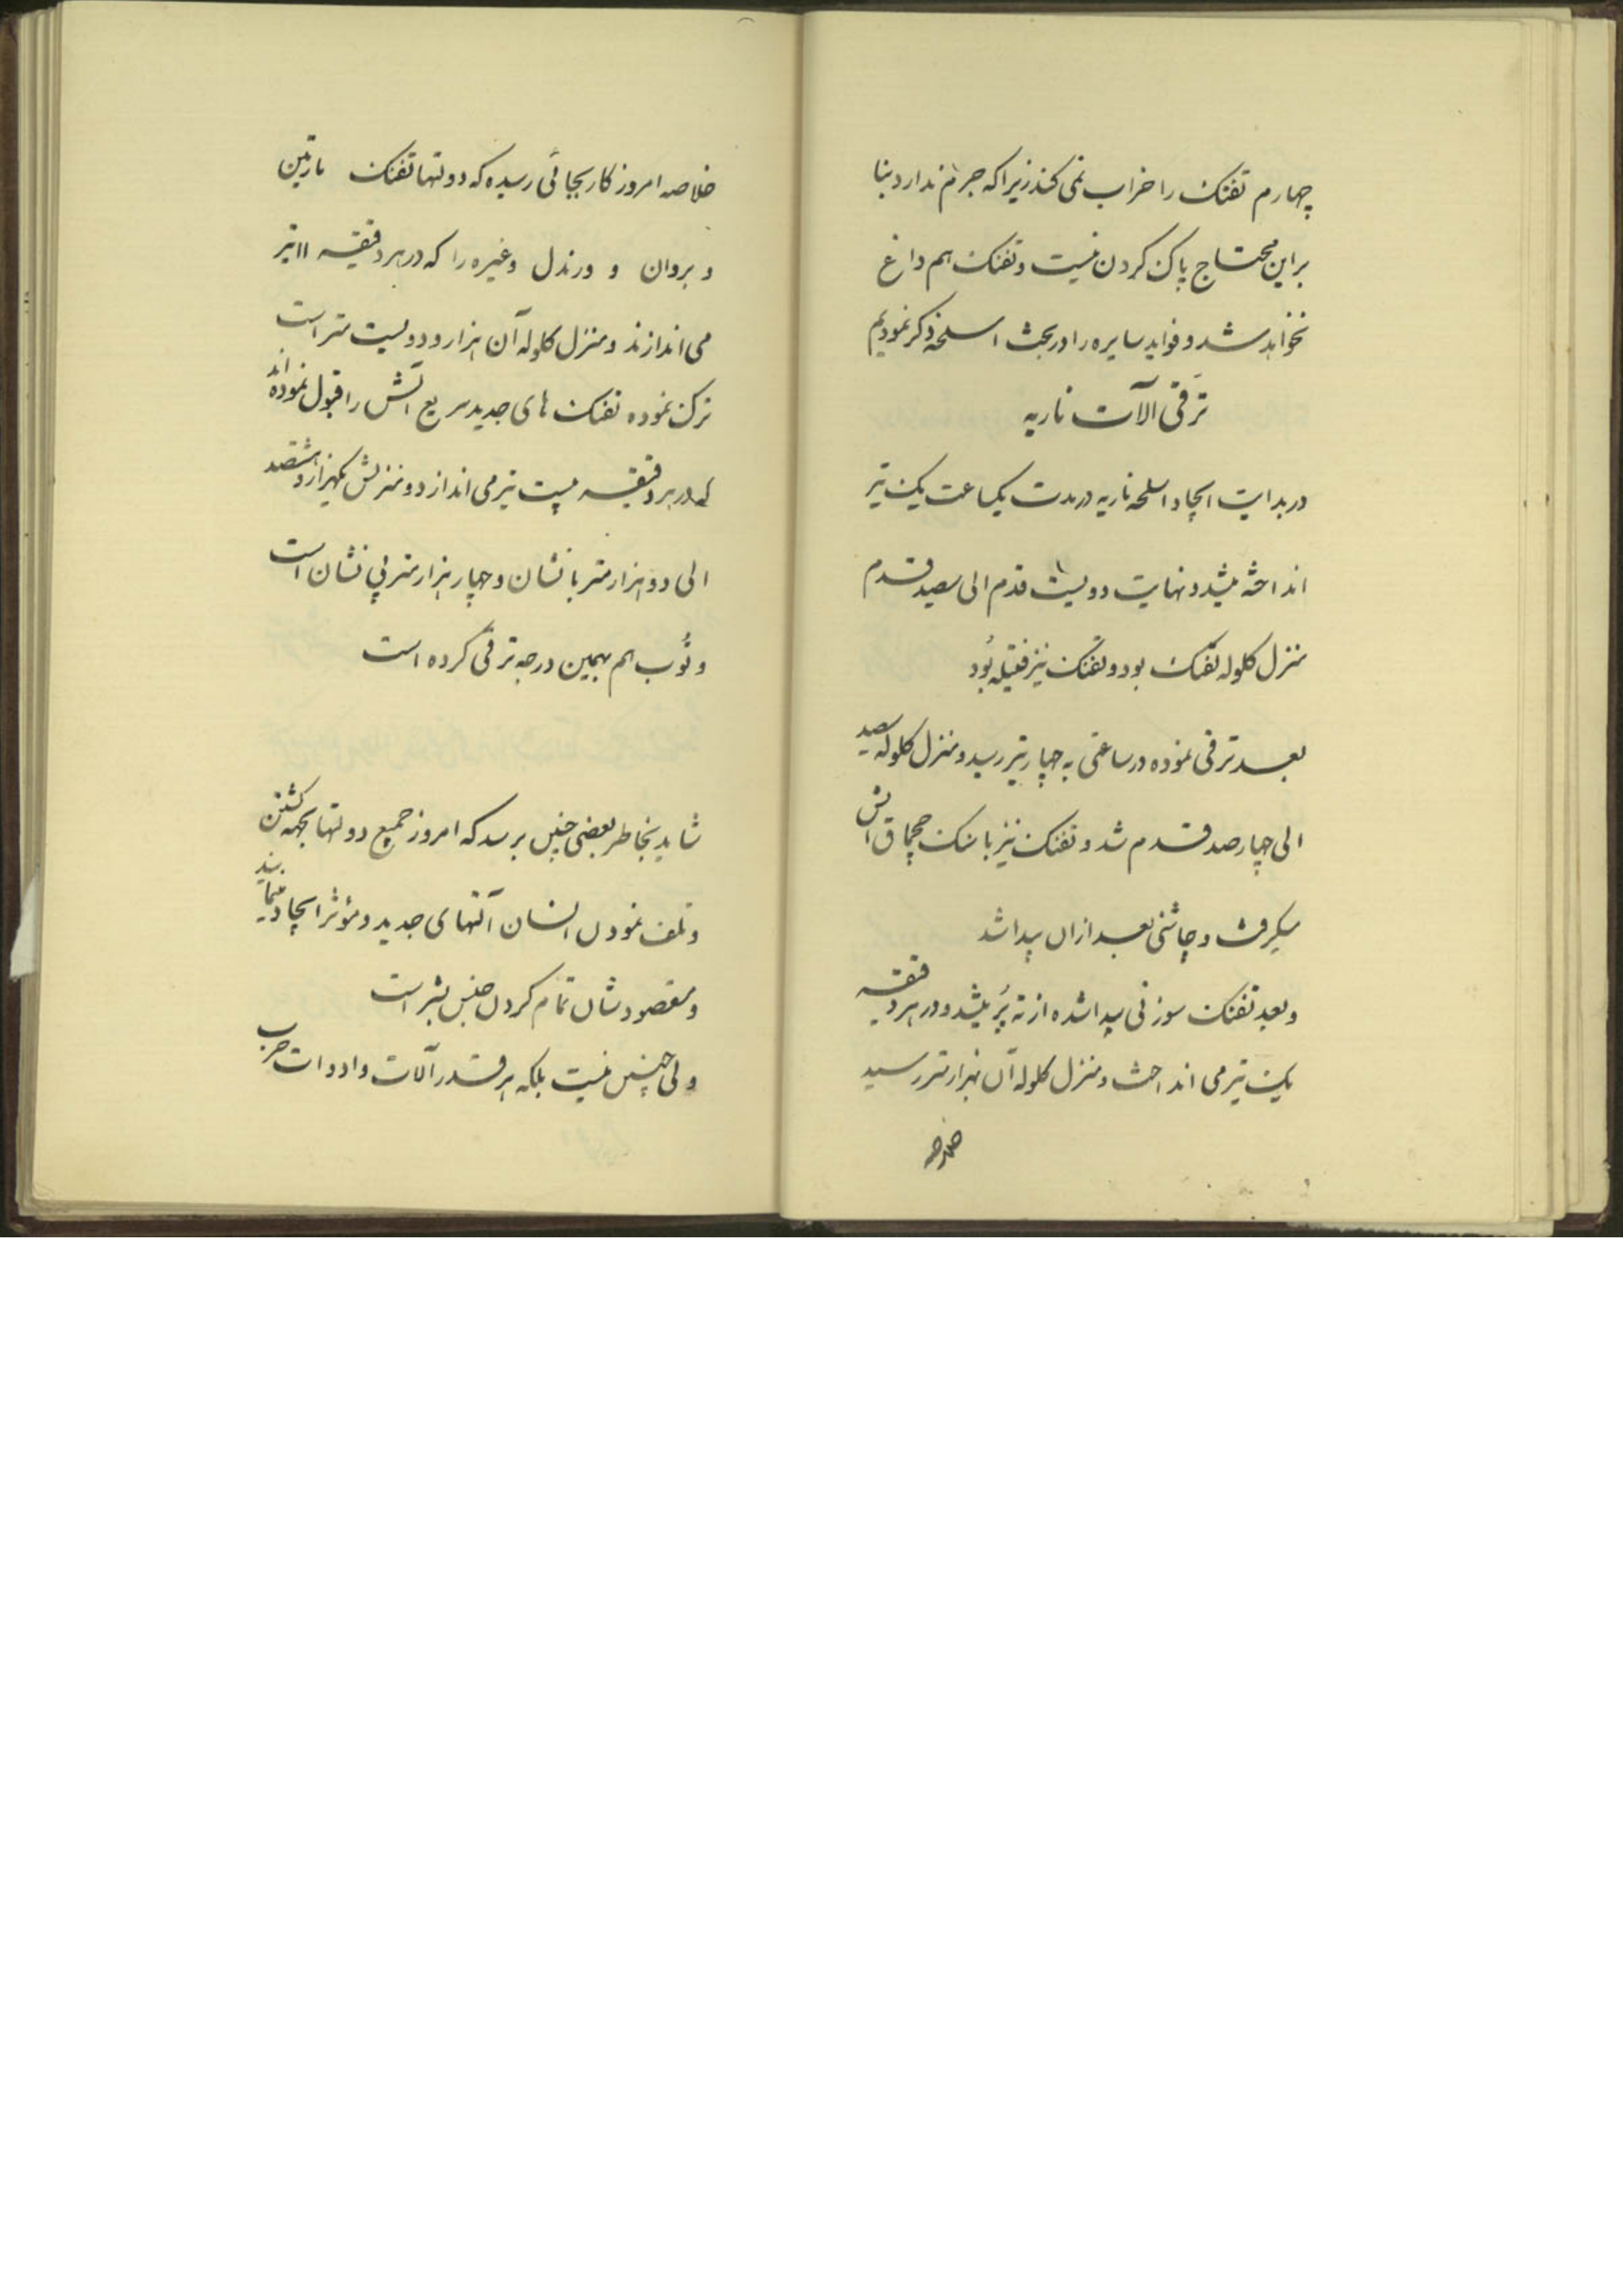 چهارم تفنک را خراب نمی کند زیرا که جرم ندارد بنا
براین محتاج پاک کردن نیست و تفنک هم داغ
نخواهد شد و فواید سایره را در بحث اسلحه ذکر نمودیم
ترقی آلات ناریه
در بدایت ایجاد اسلحه ناریه در مدت یکساعت یک تیر
انداخته میشد و نهایت دویست قدم الی سیصد قدم
منزل کلوله تفنک بود و تفنک نیز فتیله بُود
بعد ترقی نموده در ساعتی به چهار تیر رسید و منزل کلوله سیصد
الی چهارصد قدم شد و تفنک نیز با سنک چخماق آتش
میکرفت و چاشنی بعد ازان پیدا شد
و بعد تفنک سوزنی پیدا شده از ته پُر میشد و در هر دقیقه
یک تیر می انداخت و منزل کلوله آن بهزار متر رسید
خلاصه امروز کار بجائی رسیده که دولتها تفنک مارتین
و بروان و ورندل و غیره را که در هر دقیقه ۱۱ تیر
می اندازند و منزل کلوله آن هزار و دویست متر است
ترک نموده تفنک های جدید سریع آتش را قبول نموده اند
که در هر دقیقه بیست تیر می اندازد و منزلش یکهزار و هشتصد
الی دو هزار متر با نشان و چهار هزار متر بی نشان است
و توُپ هم بهمین درجه ترقی کرده است
شاید بخاطر بعضی چنین برسد که امروز جمیع دولتها بجهه کشتن
و تلف نمودن انسان آلتهای جدید و مؤثر ایجاد مینمایند
و مقصودشان تمام کردن جنس بشر است
ولی چنین نیست بلکه هر قدر آلات و ادوات حرب